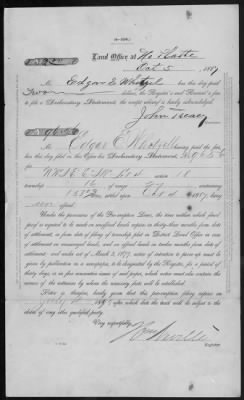 Land Office at No Platte
Oct 5 1887
Mr. Edgar E Whetzel has this day paid
dollars, the Register's and Receiver's fees
to file a Declaratory Statement, the receipt whereof is hereby acknowledged.
John
Receiver.
Mr. Edgar E Whetzell having paid the fees,
has this day filed in this Office his Declaratory Statement,
section 18
township 16 of range
settled upon Oct 4 1887, being
offered.
Under the provisions of the Pre-emption Laws, the time within which final
proof is required to be made on unoffered lands expires in thirty-three months from date
of settlement, or from date of filing of township plat in District Land Office in case
of settlement on unsurveyed lands, and on offered lands in twelve months from date of
settlement; and under act of March 3, 1879, notice of intention to prove up must be
given by publication in a newspaper, to be designated by the Register, for a period of
thirty days, in five consecutive issues of said paper, which notice must also contain the
names of the witnesses by whom the necessary facts will be established.
Notice is therefore hereby given that this pre-emption filing expires on
July 4 1890 after which date the tract will be subject to the
entry of any other qualified party.
Very respectfully,
Wm Neville
Register.